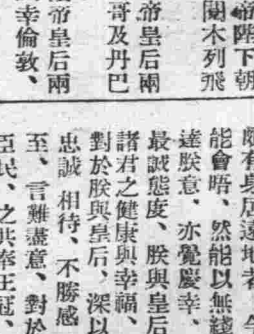 帝陛下朝
閱木列飛
帝皇后兩
哥及丹巴
帝皇后兩
幸倫敦、
頗有身居遠地者
能會晤、然能以無綫
達朕意、亦覺慶幸、
最誠態度、朕與皇后
諸君之健康與幸福、
對於朕與皇后、深以
忠誠相待、不勝感
至、言難盡意、對於
臣民、之共奉王冠、